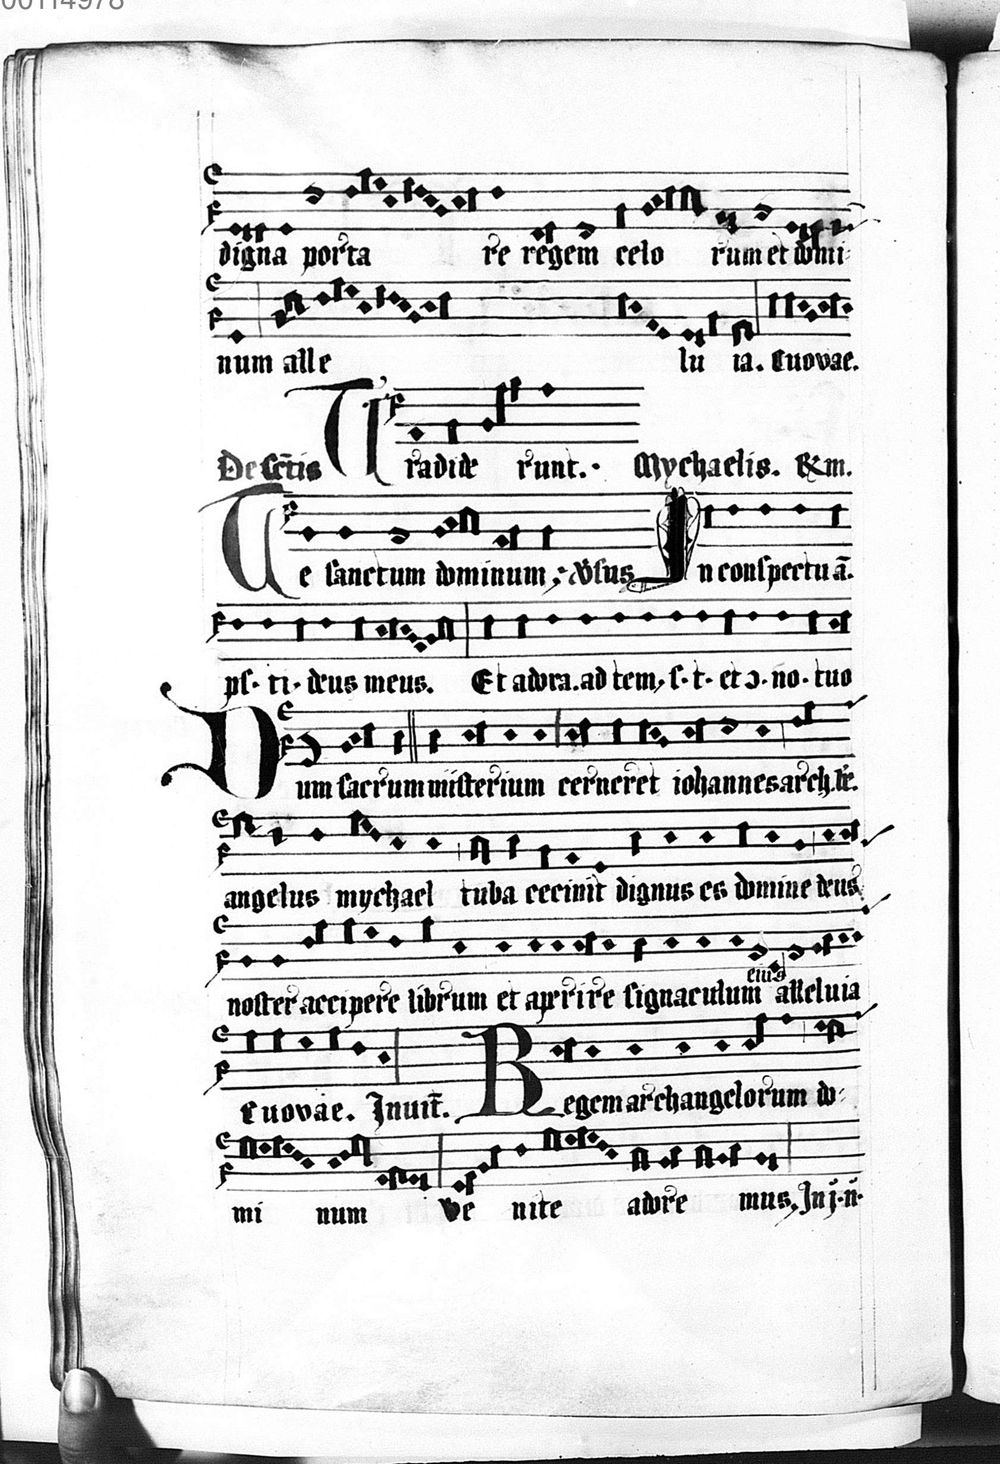 00114978
digna porta re regem celo rum et domi
num alle lu ia. Euovae.
De sc̄tis Tradide runt. Mychaelis. &m.
Te sanctum dominum, v̄sus In conspectu ā.
ps. ti. deus meus. Et adora. ad tem, s. t. et ɔ. no. tuo
Dum sacrum misterium cerneret iohannes arch. be.
angelus mychael tuba cecinit dignus es domine deus
eius
noster accipere librum et aprrire signaculum alleluia
Euovae. Inuit̄. Regem archangelorum do
mi num Ve nite adore mus, In j. n̄.